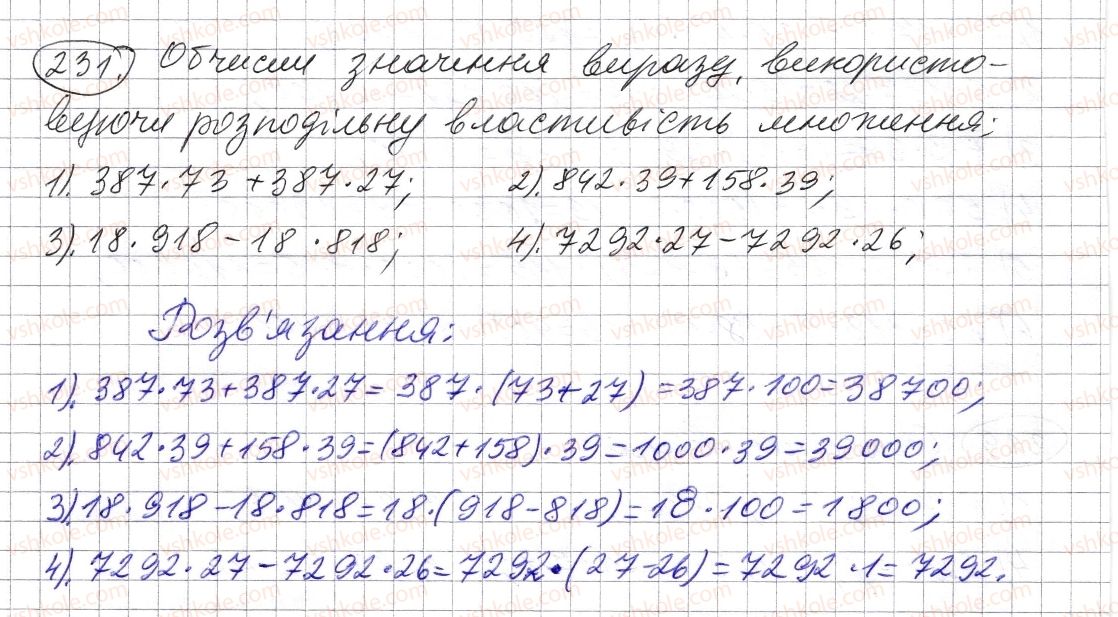 231. Обчисли значення виразу, використо-
вуючи розподільну властивість множення:
1). 387·73+387·27; 2). 842·39+158·39;
3). 18·918-18·818; 4). 7292·27-7292·26;
Розв'язання:
1). 387·73+387·27=387·(73+27)=387·100=38700;
2). 842·39+158·39=(842+158)·39=1000·39=39000;
3). 18·918-18·818=18·(918-818)=18·100=1800;
4). 7292·27-7292·26=7292·(27-26)=7292·1=7292.
vshkole.com